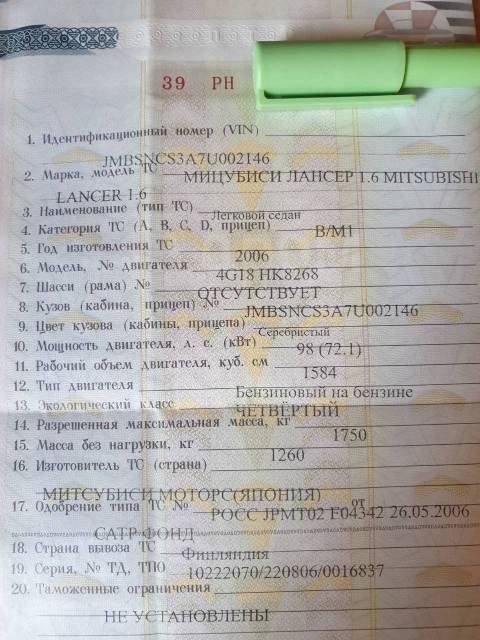 39 РН
1. Идентификационный номер (VIN)
JMBSNCS3A7U002146
2. Марка, модель ТС МИЦУБИСИ ЛАНСЕР 1.6 MITSUBISHI
LANCER 1.6
3. Наименование (тип ТС) Легковой седан
4. Категория ТС (А, В, С, D, прицеп) B/M1
5. Год изготовления ТС 2006
6. Модель, № двигателя 4G18 HK8268
7. Шасси (рама) № ОТСУТСТВУЕТ
8. Кузов (кабина, прицеп) № JMBSNCS3A7U002146
9. Цвет кузова (кабины, прицепа) Серебристый
10. Мощность двигателя, л. с. (кВт) 98 (72.1)
11. Рабочий объем двигателя, куб. см 1584
12. Тип двигателя Бензиновый на бензине
13. Экологический класс ЧЕТВЁРТЫЙ
14. Разрешенная максимальная масса, кг 1750
15. Масса без нагрузки, кг 1260
16. Изготовитель ТС (страна)
МИТСУБИСИ МОТОРС(ЯПОНИЯ)
17. Одобрение типа ТС № РОСС JPMT02 E04342 от 26.05.2006
САТР-ФОНД
18. Страна вывоза ТС Финляндия
19. Серия, № ТД, ТПО 10222070/220806/0016837
20. Таможенные ограничения
НЕ УСТАНОВЛЕНЫ